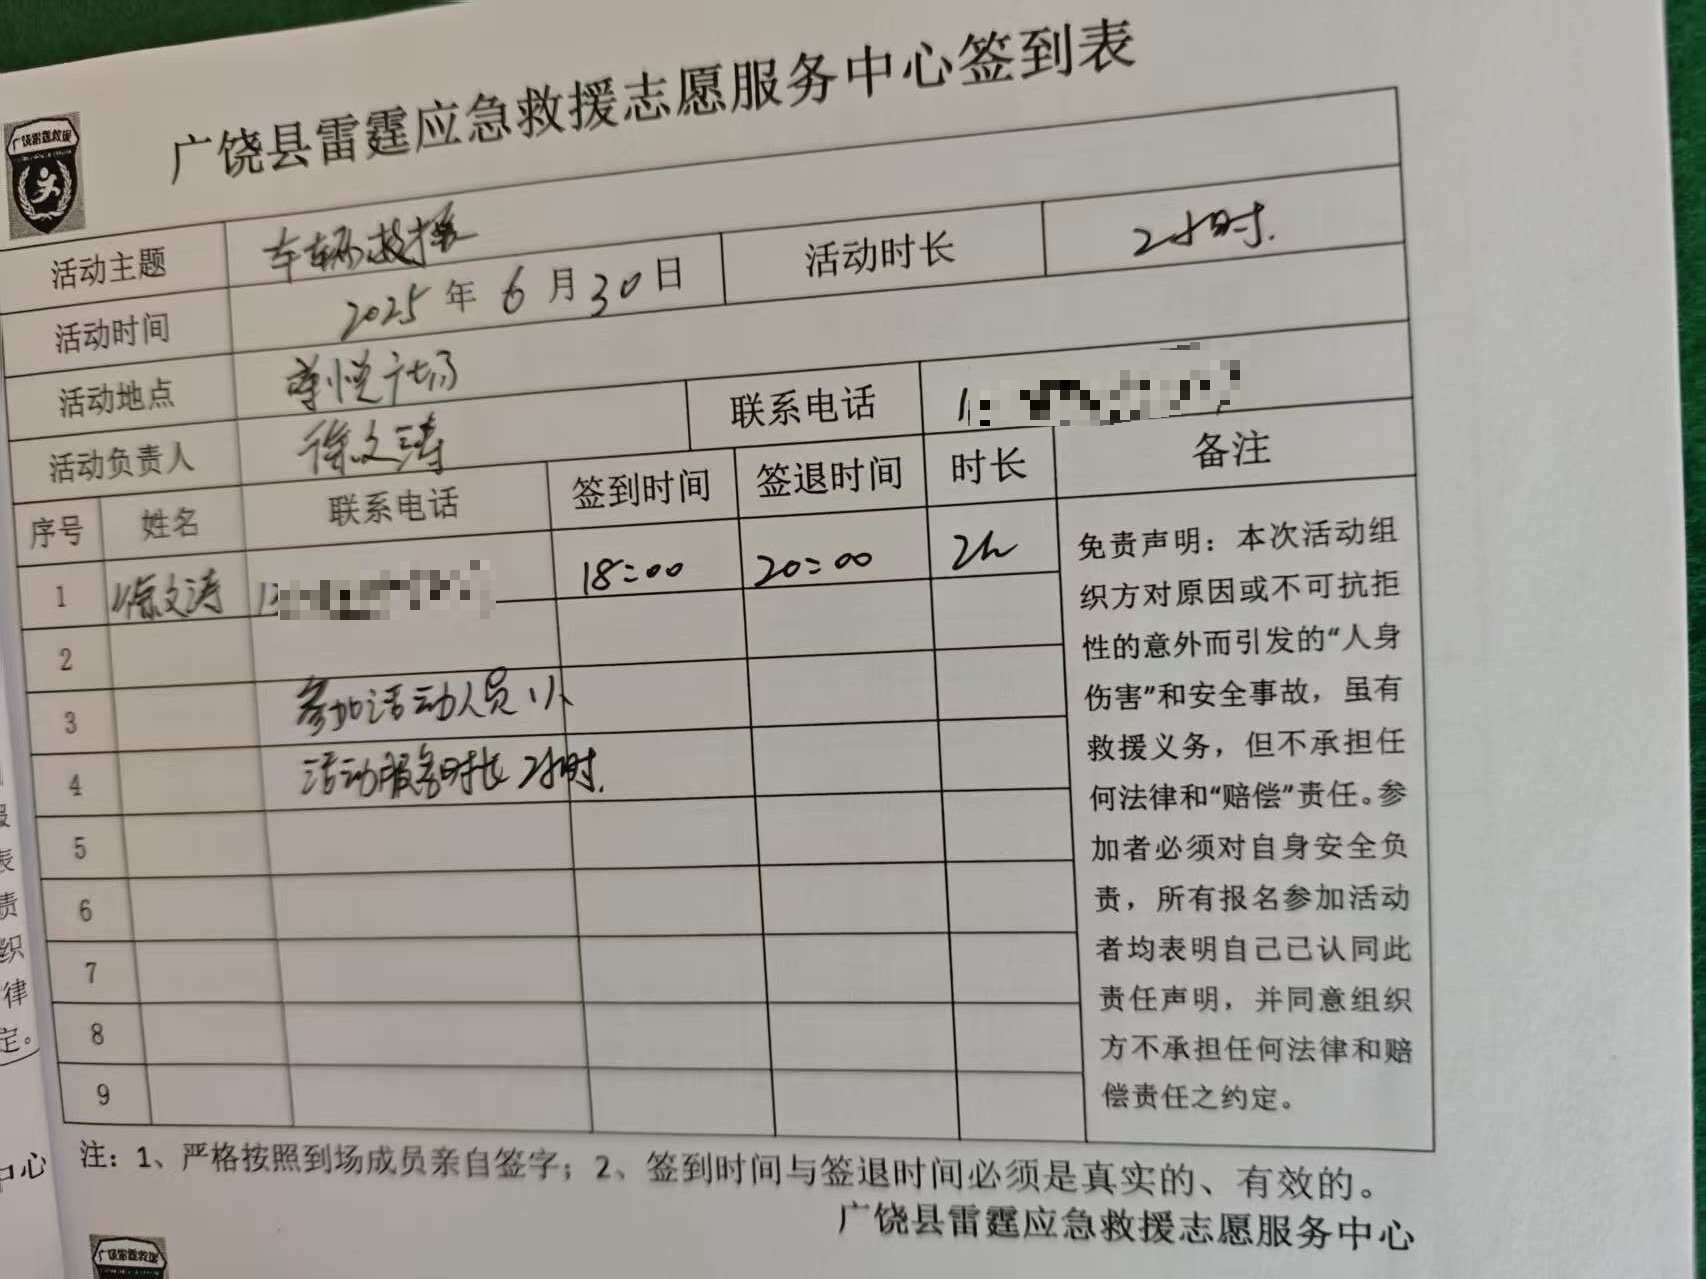 广饶县雷霆应急救援志愿服务中心签到表
广饶雷霆救援
活动主题 车辆救援
活动时间 2025年6月30日 活动时长 2小时.
活动地点 尊悦广场
活动负责人 徐文涛 联系电话 1
序号 姓名 联系电话 签到时间 签退时间 时长 备注
1 徐文涛 18:00 20:00 2h
2
3 参加活动人员1人
4 活动服务时长2小时.
5
6
7
8
9
免责声明：本次活动组
织方对原因或不可抗拒
性的意外而引发的“人身
伤害”和安全事故，虽有
救援义务，但不承担任
何法律和“赔偿”责任。参
加者必须对自身安全负
责，所有报名参加活动
者均表明自己已认同此
责任声明，并同意组织
方不承担任何法律和赔
偿责任之约定。
注：1、严格按照到场成员亲自签字；2、签到时间与签退时间必须是真实的、有效的。
广饶县雷霆应急救援志愿服务中心
表
责
织
律
定。
中心
广饶雷霆救援